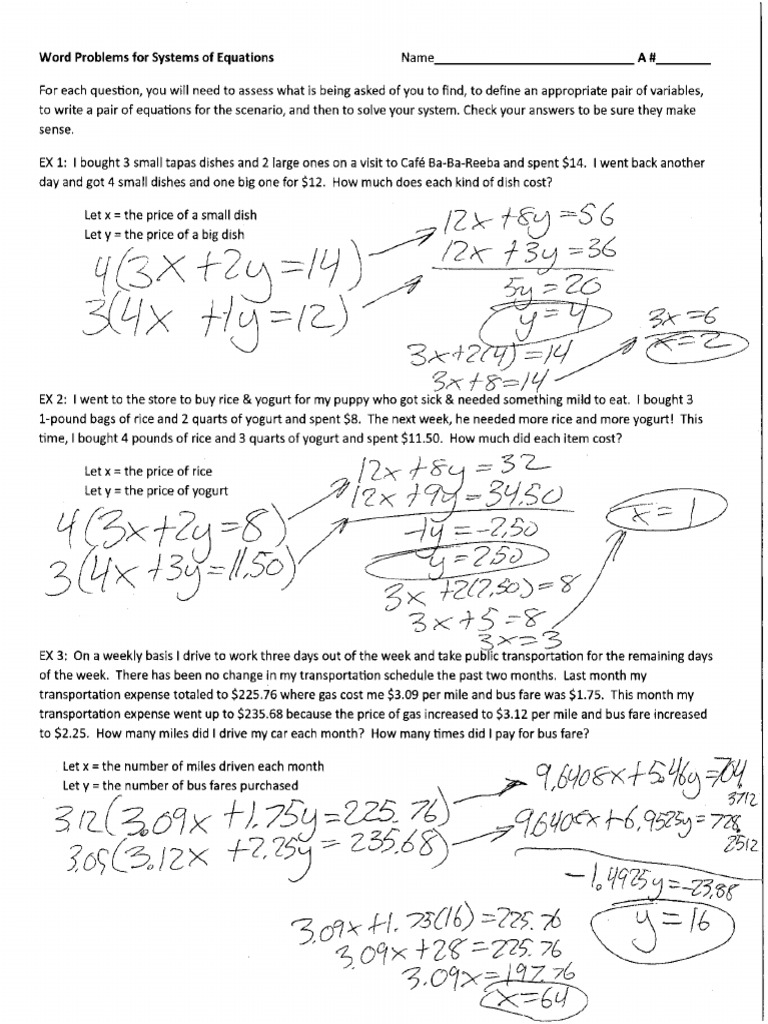 Word Problems for Systems of Equations Name____________________ A #________
For each question, you will need to assess what is being asked of you to find, to define an appropriate pair of variables,
to write a pair of equations for the scenario, and then to solve your system. Check your answers to be sure they make
sense.
EX 1: I bought 3 small tapas dishes and 2 large ones on a visit to Café Ba-Ba-Reeba and spent $14. I went back another
day and got 4 small dishes and one big one for $12. How much does each kind of dish cost?
Let x = the price of a small dish
Let y = the price of a big dish
4(3x+2y=14)
3(4x+1y=12)
12x+8y=56
12x+3y=36
5y=20
y=4
3x+2(4)=14
3x+8=14
3x=6
x=2
EX 2: I went to the store to buy rice & yogurt for my puppy who got sick & needed something mild to eat. I bought 3
1-pound bags of rice and 2 quarts of yogurt and spent $8. The next week, he needed more rice and more yogurt! This
time, I bought 4 pounds of rice and 3 quarts of yogurt and spent $11.50. How much did each item cost?
Let x = the price of rice
Let y = the price of yogurt
4(3x+2y=8)
3(4x+3y=11.50)
12x+8y=32
12x+9y=34.50
-1y=-2.50
y=2.50
3x+2(2.50)=8
3x+5=8
3x=3
x=1
EX 3: On a weekly basis I drive to work three days out of the week and take public transportation for the remaining days
of the week. There has been no change in my transportation schedule the past two months. Last month my
transportation expense totaled to $225.76 where gas cost me $3.09 per mile and bus fare was $1.75. This month my
transportation expense went up to $235.68 because the price of gas increased to $3.12 per mile and bus fare increased
to $2.25. How many miles did I drive my car each month? How many times did I pay for bus fare?
Let x = the number of miles driven each month
Let y = the number of bus fares purchased
3.12(3.09x+1.75y=225.76)
3.09(3.12x+2.25y=235.68)
9.6408x+5.46y=704.
3712
9.6408x+6.9525y=728.
2512
-1.4925y=-23.88
y=16
3.09x+1.75(16)=225.76
3.09x+28=225.76
3.09x=197.76
x=64